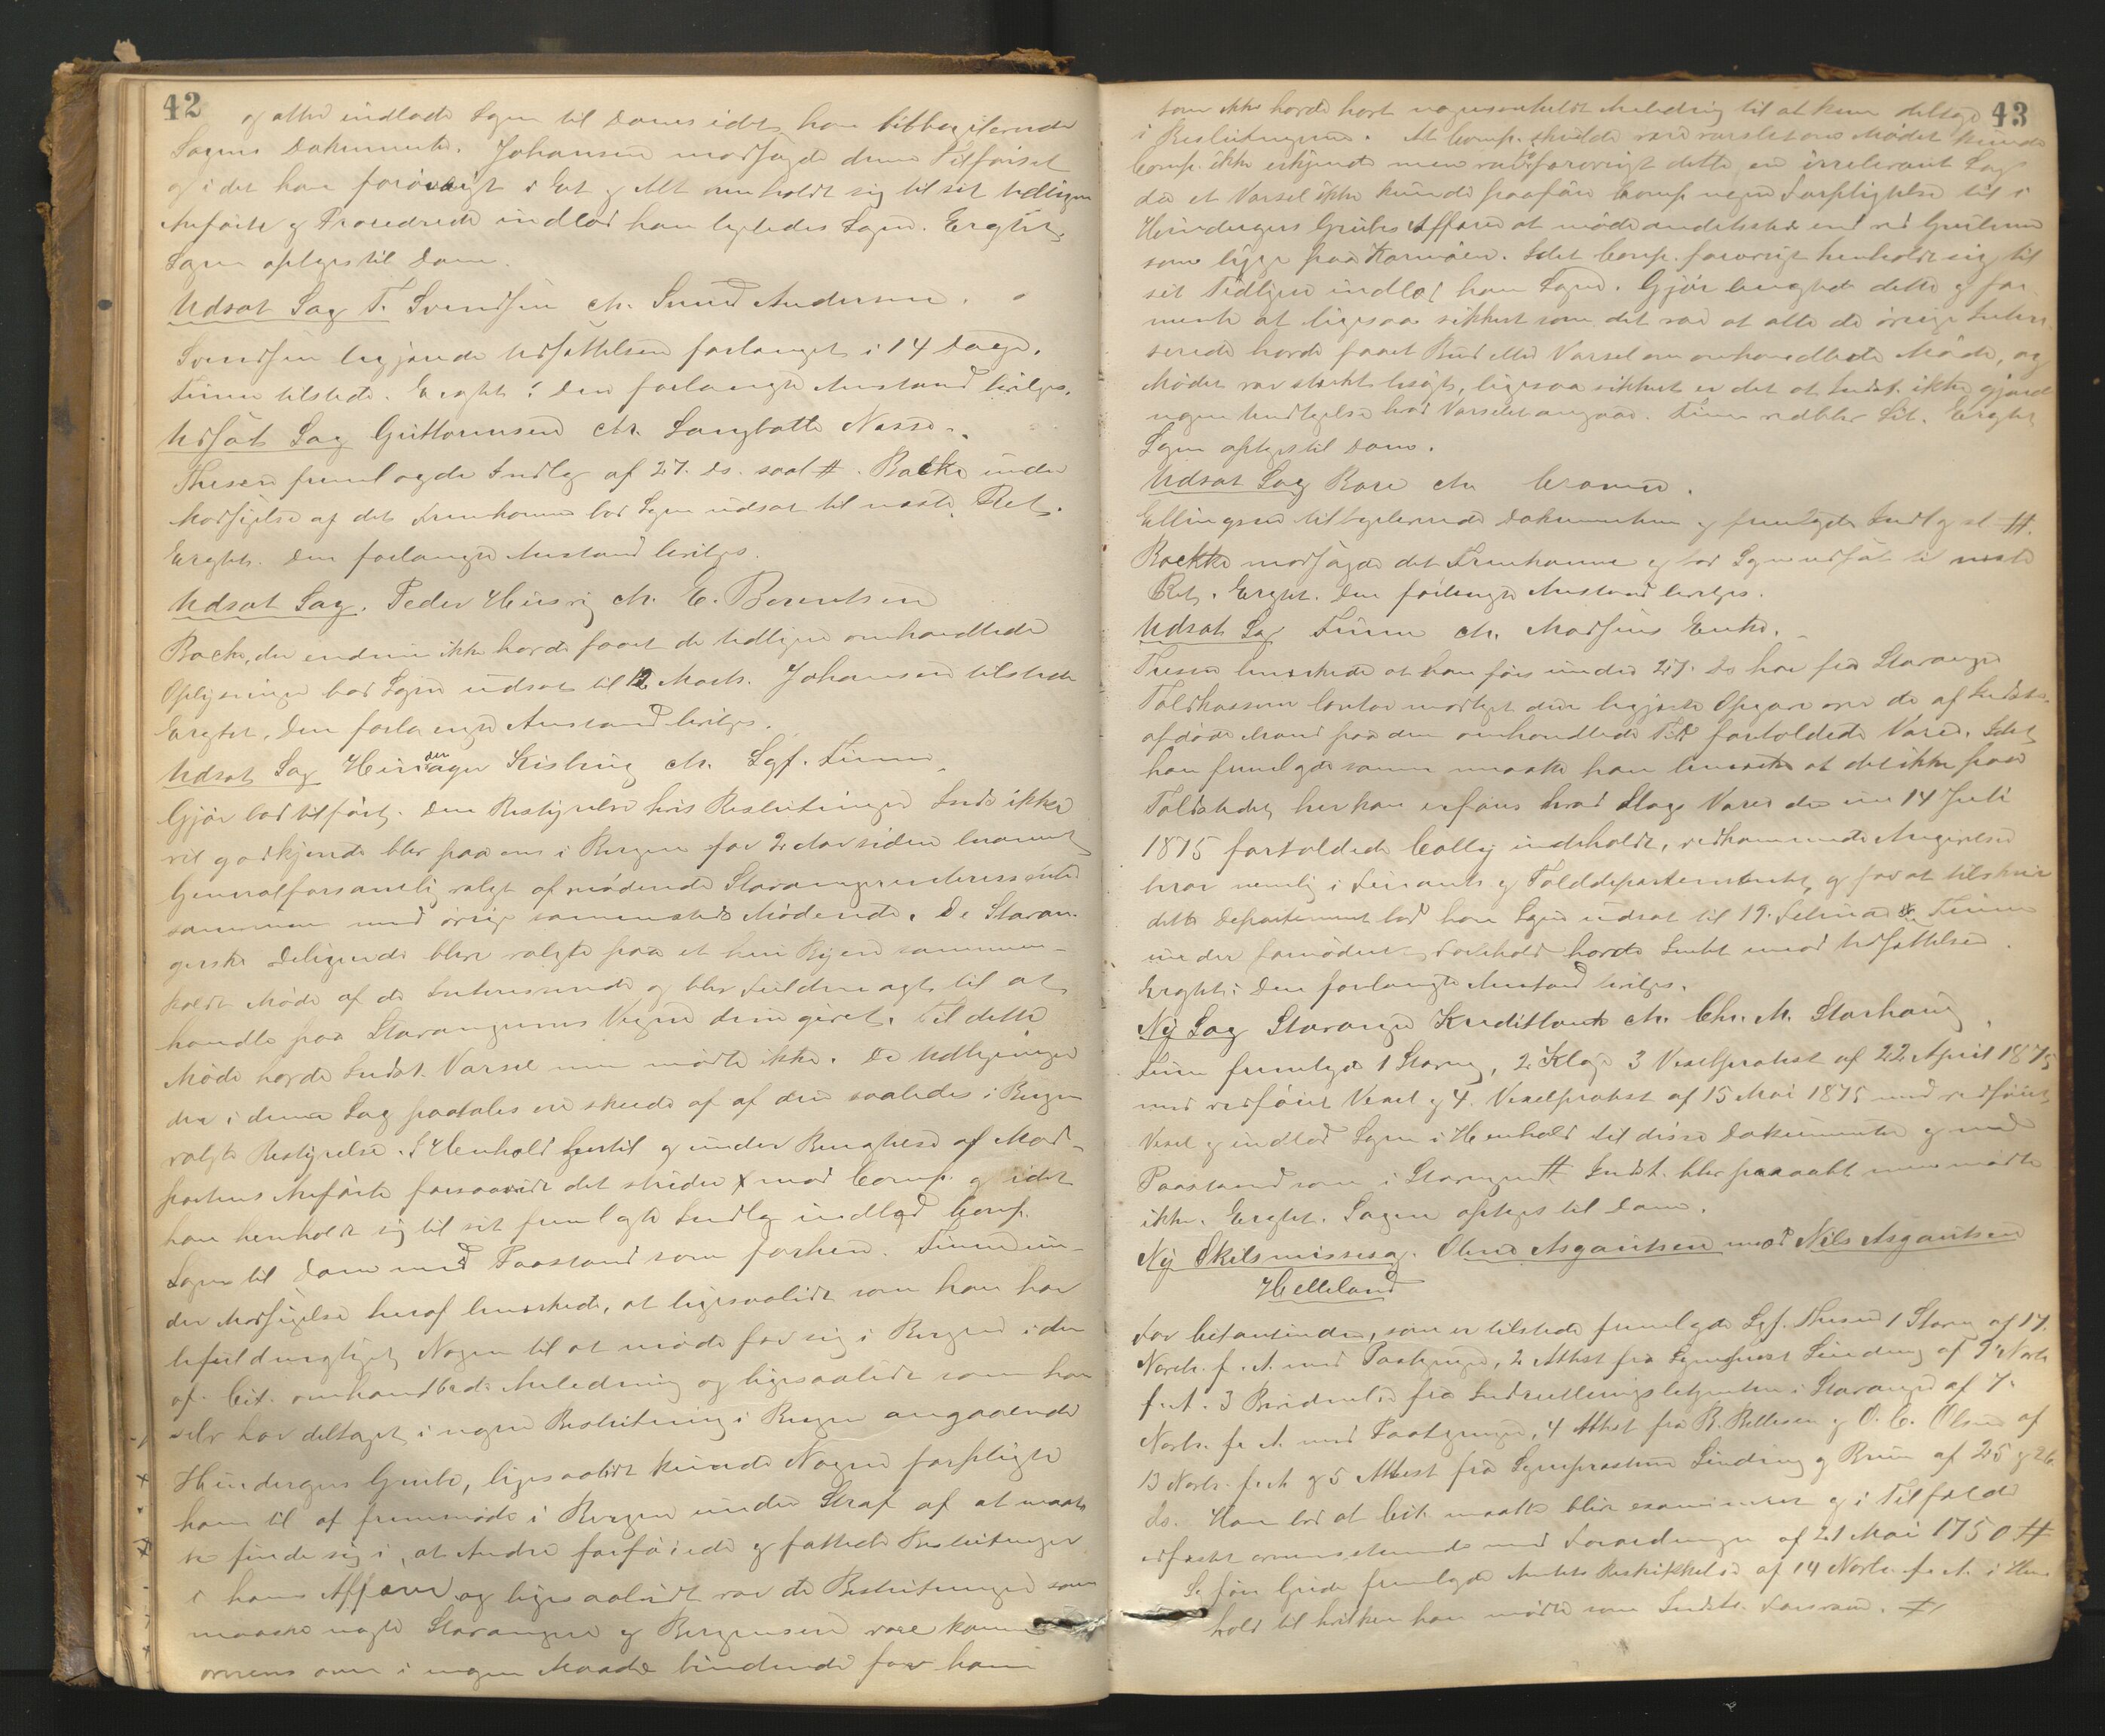 42
og atter indlod Sagen til Doms idet han tilbageleverede
Sagens Dokumenter. Johansen modsagde denne Tilførsel
og i det han forøvrigt i Et og Alt henholdt sig til sit tidligere
Anførte og Procederede indlod han ligeledes Sagen. Eragtet,
Sagen optages til Dom.
Udsat Sag T. Svendsen ctr. Svend Andersen.
Svendsen begjærede Udsættelsen forlænget i 14 Dage.
Finne tilstede. Eragtet: Den forlangte Anstand bevilges.
Udsat Sag Guttormsen ctr. Langbotte Næsse
Thesen fremlagde Indlæg af 27. ds. saal #. Backe under
Modsigelse af det Fremkomne bad Sagen udsat til næste Ret.
Eragtet. Den forlangte Anstand bevilges.
Udsat Sag. Peder Husvig ctr. E. Berentsen
Backe, der endnu ikke havde faaet de tidligere omhandlede
Oplysninger bad Sagen udsat til 12 Marts. Johansen tilstede
Eragtet, den forlangte Anstand bevilges.
Udsat Sag Hinderager Kisling ctr. Sgf. Finne
Gjør bad tilført. Den Bestyrelse hvis Beslutninger Indst ikke
vil godkjende blev paa en i Bergen for 2 Aar siden
Generalforsamling valgt af mødende Stavangerinteressenter
sammen med øvrige sammesteds Mødende. De Stavan-
gerske Deligerede blev valgte paa et her i Byen sammen-
kaldt Møde af de Interesserede og blev Fuldmagt til at
handle paa Stavangernes Vegne dem givet. Til dette
Møde havde Indst. Varsel men mødte ikke. De Udligninger
der i denne Sag paatales ere skeede af den saaledes i Bergen
valgte Bestyrelse. I Henhold hertil og under Benegtelse af Mod-
partens Anførte forsaavidt det strider mod Comp. og idet
han henholdt sig til sit fremlagte Indlæg indlod Comp.
Sagen til Dom med Paastand som forhen. Finne un-
der Modsigelse heraf bemærkede, at ligesaalidt som han har
befuldmægtiget Nogen til at møde for sig i Bergen i den
af Cit. omhandlede Anledning og ligesaalidt som han
selv har deltaget i nogen Beslutning i Bergen angaaende
Hinderagers Grube, ligesaalidt kunde Nogen forpligte
ham til at fremmøde i Bergen under Straf af at maat-
te finde sig i, at Andre forføiede og fattede Beslutninger
i hans Affære og ligesaalidt var de Beslutninger som
maaske nogle Stavangere og Bergensere vare komne
overens om i nogen Maade bindende for ham
43
som ikke havde havt nogensomhelst Anledning til at kun deltage
i Beslutningerne. At Comp. skulde være varslet om Mødet kunde
Comp. ikke erkjende men var forøvrigt dette en irrelevant Sag
da et Varsel ikke kunde paaføre Comp nogen Forpligtelse til i
Hinderagers Grubes Affære at møde andetsteds end ved Gruberne
som ligge paa Karmøen. Idet Comp. forøvrigt henholdt sig til
sit Tidligere indlod han Sagen. Gjør benegtede dette og for-
mente at ligesaa sikkert som det var at alle de øvrige Interes-
serede havde faaet Bud eller Varsel om omhandlede Møde, og
Mødet var stærkt besøgt, ligesaa sikkert er det at Indst. ikke gjorde
nogen Undtagelse hvad Varselet angaar. Finne vedblev Sit. Eragtet
Sagen optages til Dom.
Udsat Sag Rase ctr
Ellingsen tilbageleverede Dokumenterne og fremlagde Indlæg sl #.
Backe modsagde det Fremkomne og bad Sagen udsat til næste
Ret. Eragtet. Den forlangte Anstand bevilges.
Udsat Sag Finne ctr. Madsens Enke.
Thesen bemærkede at han først under 27. ds har fra Stavanger
Toldkasserer Contor modtaget den begjærte Opgave over de af Indsts.
afdøde Mand paa den omhandlede Tid fortoldede Varer. Idet
han fremlagde samme maatte han bemærke at det ikke paa
Toldstedet her kan erfares hvad Slags Varer de under 14 Juli
1875 fortoldede Colly indeholdt, vedkommende Angivelse
beror nemlig i Finants og Tolddepartementet, og for at tilskrive
dette Departement bad han Sagen udsat til 19. Februar. Finne
under fornødent Forbehold havde Intet imod Udsættelsen.
Eragtet: Den forlangte Anstand bevilges.
Ny Sag Stavanger Kreditbank ctr. Chr. M. Storhaug
Finne fremlagde 1 Stævng, 2 Klage 3 Vexelprotest af 22 April 1875
med vedføiet Vexel og 4. Vexelprotest af 15 Mai 1875 med vedføiet
Vexel og indlod Sagen i Henhold til disse Dokumenter og med
Paastand som i Stævngen # Indst. blev paaraabt men mødte
ikke. Eragtet. Sagen optages til Dom.
Ny Skilsmissesag. Olene Asgautsen mod Nils Asgautsen
Helleland
For Citantinden, som er tilstede fremlagde Sgf. Thesen 1 Stævn af 17.
Novbr. f. A. med Paategning, 2 Attest fra Sognepræst Lindeng af 9 Novb
f. A. 3 fra Indrulleringsbetjenten i Stavanger af 7.
Novbr. f. A. med Paategning, 4 Attest fra B. Bellesen og O. C. Olsen af
13 Novbr. f. A og 5 Attest fra Sognepræsterne Lindeng og Bruun af 25 og 26
ds. Han bad at Cit. maatte blive examineret og i Tilfælde
edfæstet overensstemmende med Forordningen af 21 Mai 1750 #
Grude fremlagde Amtets Beskikkelse af 14 Novbr. f. A. i Hen-
hold til hvilken han mødte som Indsts. Forsvarer. #